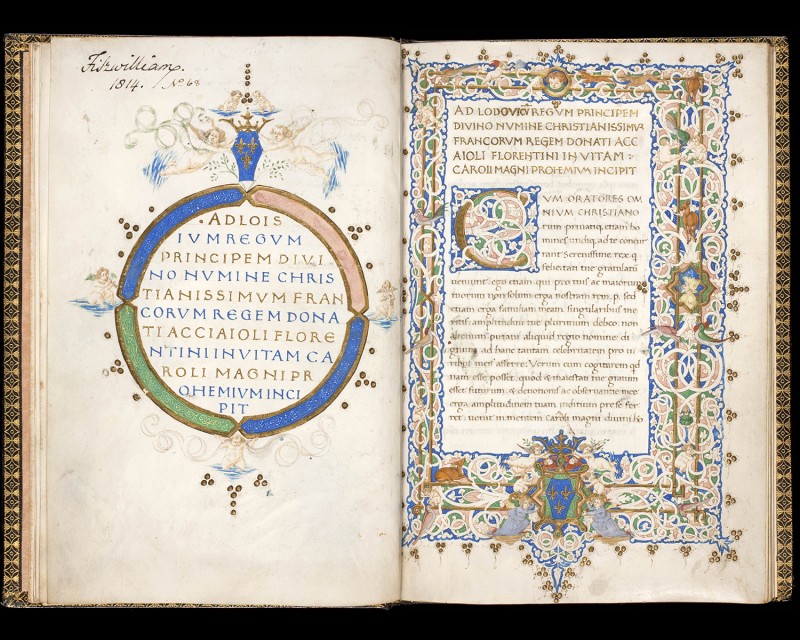 Fitzwilliam.
1814. No 68
· AD LOIS
IVM REGVM
PRINCIPEM DIVI·
NO NVMINE CHRIS
TIANISSIMVM FRAN
CORVM REGEM DONA
TI ACCIAIOLI FLORE
NTINI IN VITAM CA
ROLI MAGNI PR
OHEMIVM INCI
PIT
AD LODOVICV REGVM PRINCIPEM
DIVINO NVMINE CHRISTIANISSIMV
FRANCORVM REGEM DONATI ACC
AIOLI FLORENTINI IN VITAM :
CAROLI MAGNI PROHEMIVM INCIPIT
CVM ORATORES OM
NIVM CHRISTIANO
rum priuatiq; etiam ho
mines undiq; ad te concur
rant Serenissime rex q;
felicitati tue gratulati
ueniunt: ego etiam qui pro tuis ac maiorum
tuorum non solum erga nostram rem. p. sed
etiam erga familiam meam singularibus me
ritis amplitudini tue plurimum debeo. non
alienum putaui aliquid regio nomine di
gnum ad hanc tantam celebritatem pro ui
ribus meis afferre. Verum cum cogitarem qd
nam esse posset, quod & maiestati tue gratum
esset futurum & deuotionis ac obseruantie mee
erga amplitudinem tuam inditium pre se fer
ret: uenit in mentem Caroli magni